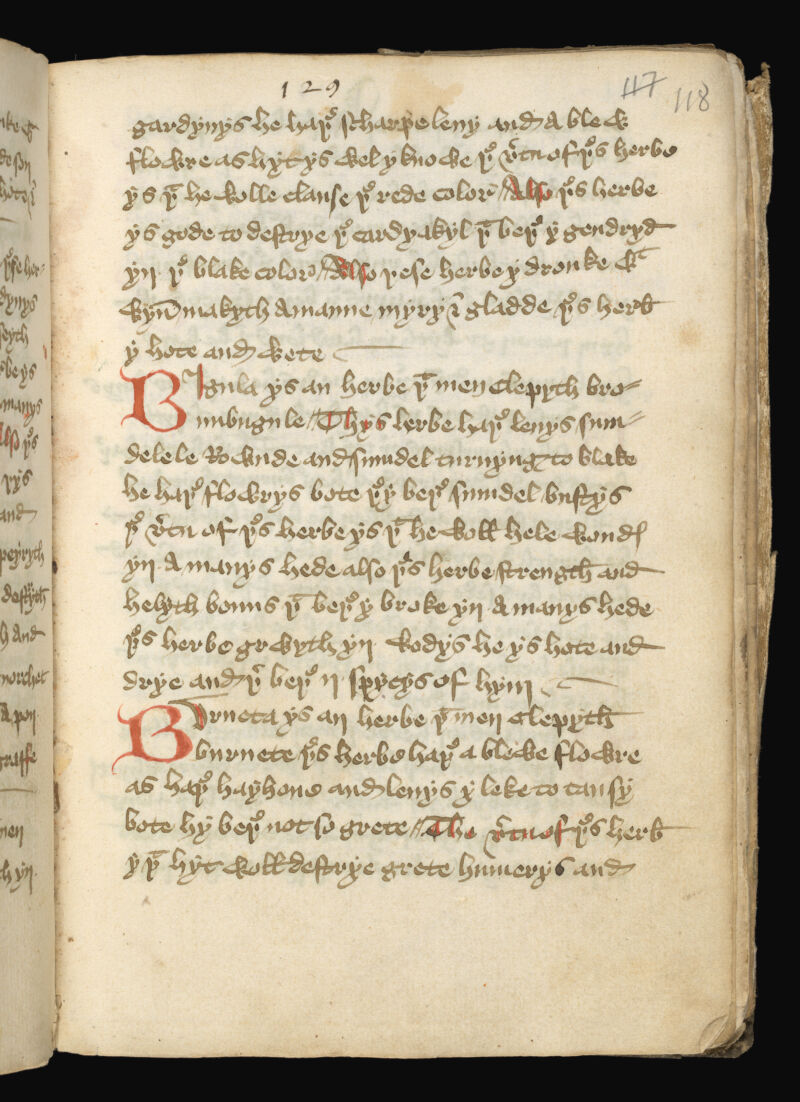 129
117 118
gardynys he haþ scharpe levy and A blew
flowre as hyt ys wel y knowe þe vertu of þs herbe
ys þt he wolle clanse þe rede color Also þs herbe
ys gode to destrye þe cardyakyl þt beþ y gendryd
yn þe blake color Also þese herbe y dronke wt
wyn makyth A manne myry & gladde þs herb
y hote and wete
BIgula ys an herbe þt men clepyth bro=
unbugule Thys herbe haþ levys sum=
dele le Rownde and sumdel turnyng to blake
he haþ flowrys bote þey beþ sumdel
þe vertu of þs herbe ys þt he woll hele wond
yn A manys hede also þs herbe strength and
helyth bonus þt beþ y broke yn A manys hede
þs herbe growyth yn wodys he ys hote and
drye and þr beþ ii spycys of hym
BUrneta ys an herbe þt men clepyth
burnete þs herbe haþ a blewe flowre
as haþ hayhove and levys y leke to tansy
bote hy beþ not so grete The vertu of þs herb
y þt hyt woll destrye grete humerys and